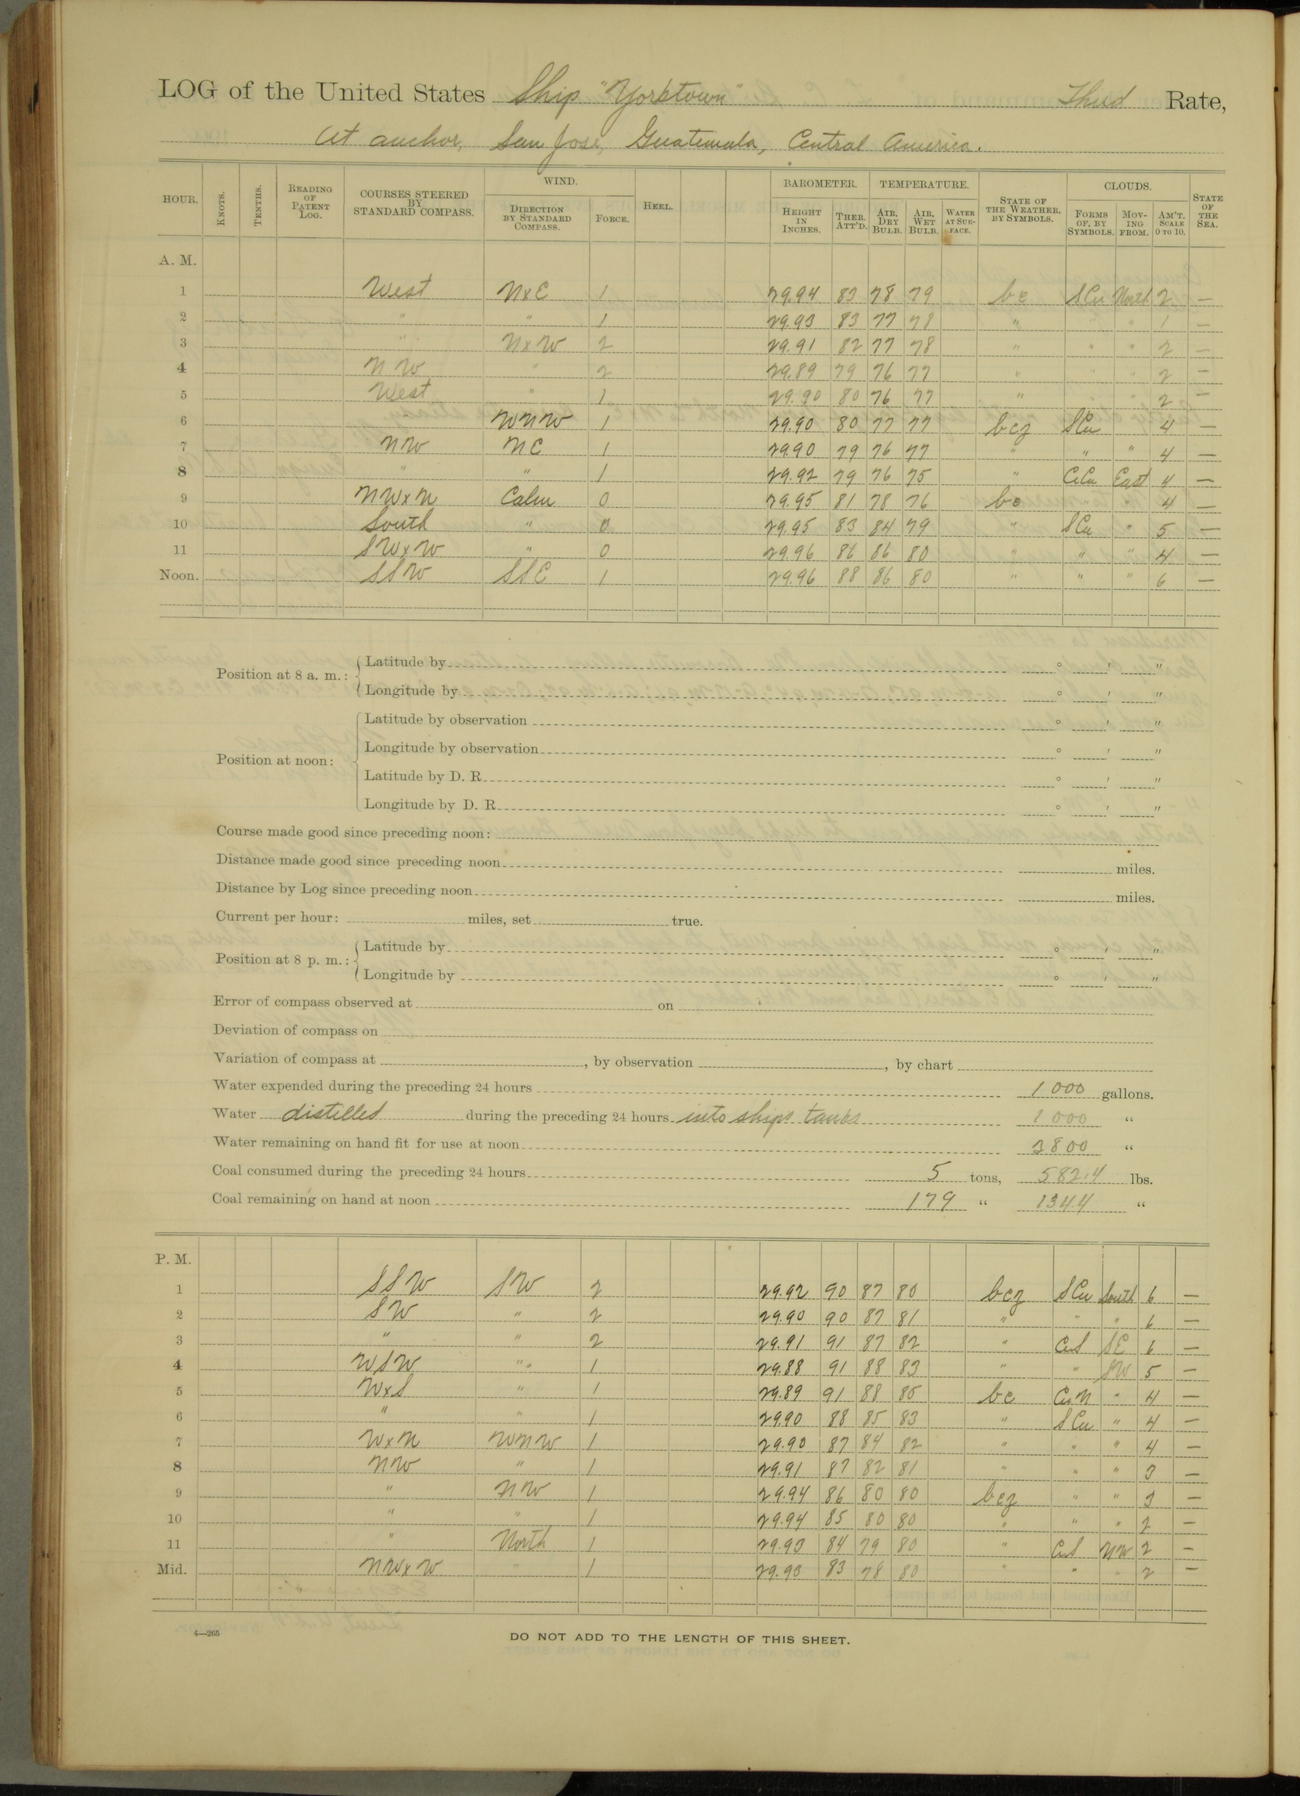 LOG of the United States Ship "Yorktown" Third Rate,
At anchor, San Jose, Guatemala, Central America.
HOUR. KNOTS. TENTHS. READING OF PATENT LOG. COURSES STEERED BY STANDARD COMPASS. WIND. DIRECTION BY STANDARD COMPASS. FORCE. HEEL. BAROMETER. HEIGHT IN INCHES. THER. ATT'D. TEMPERATURE. AIR, DRY BULB. AIR, WET BULB. WATER AT SUR-FACE. STATE OF THE WEATHER, BY SYMBOLS. CLOUDS. FORMS OF, BY SYMBOLS. MOV-ING FROM. AM'T. SCALE 0 TO 10. STATE OF THE SEA.
A. M.
1 West NxE 1 29.94 83 78 79 bc SCu North 2 —
2 " " 1 29.93 83 77 78 " " " 1 —
3 " NxW 2 29.91 82 77 78 " " " 2 —
4 NW " 2 29.89 79 76 77 " " " 2 —
5 West " 1 29.90 80 76 77 " " " 2 —
6 WNW 1 29.90 80 77 77 bcz SCu " 4 —
7 NW NE 1 29.90 79 76 77 " " " 4 —
8 " " 1 29.92 79 76 75 " CiCu East 4 —
9 NWxN Calm 0 29.95 81 78 76 bc " " 4 —
10 South " 0 29.95 83 84 79 " SCu " 5 —
11 SWxW " 0 29.96 86 86 80 " " " 4 —
Noon. SSW SSE 1 29.96 88 86 80 " " " 6 —
Position at 8 a. m.: Latitude by ° ' "
Longitude by ° ' "
Position at noon: Latitude by observation ° ' "
Longitude by observation ° ' "
Latitude by D. R. ° ' "
Longitude by D. R. ° ' "
Course made good since preceding noon:
Distance made good since preceding noon miles.
Distance by Log since preceding noon miles.
Current per hour: miles, set true.
Position at 8 p. m.: Latitude by ° ' "
Longitude by ° ' "
Error of compass observed at on
Deviation of compass on
Variation of compass at , by observation , by chart
Water expended during the preceding 24 hours 1000 gallons.
Water distilled during the preceding 24 hours into ships tanks 1000 "
Water remaining on hand fit for use at noon 3800 "
Coal consumed during the preceding 24 hours 5 tons, 582.4 lbs.
Coal remaining on hand at noon 179 " 1344 "
P. M.
1 SSW SW 2 29.92 90 87 80 bcz SCu South 6 —
2 SW " 2 29.90 90 87 81 " " " 6 —
3 " " 2 29.91 91 87 82 " CuS SE 6 —
4 WSW " 1 29.88 91 88 83 " " SW 5 —
5 WxS " 1 29.89 91 88 85 bc CuN " 4 —
6 " " 1 29.90 88 85 83 " SCu " 4 —
7 WxN WNW 1 29.90 87 84 82 " " " 4 —
8 NW " 1 29.91 87 82 81 " " " 3 —
9 " NW 1 29.94 86 80 80 bcz " " 3 —
10 " " 1 29.94 85 80 80 " " " 2 —
11 " North 1 29.93 84 79 80 " CuS NW 2 —
Mid. NWxW " 1 29.93 83 78 80 " " " 2 —
4—265
DO NOT ADD TO THE LENGTH OF THIS SHEET.